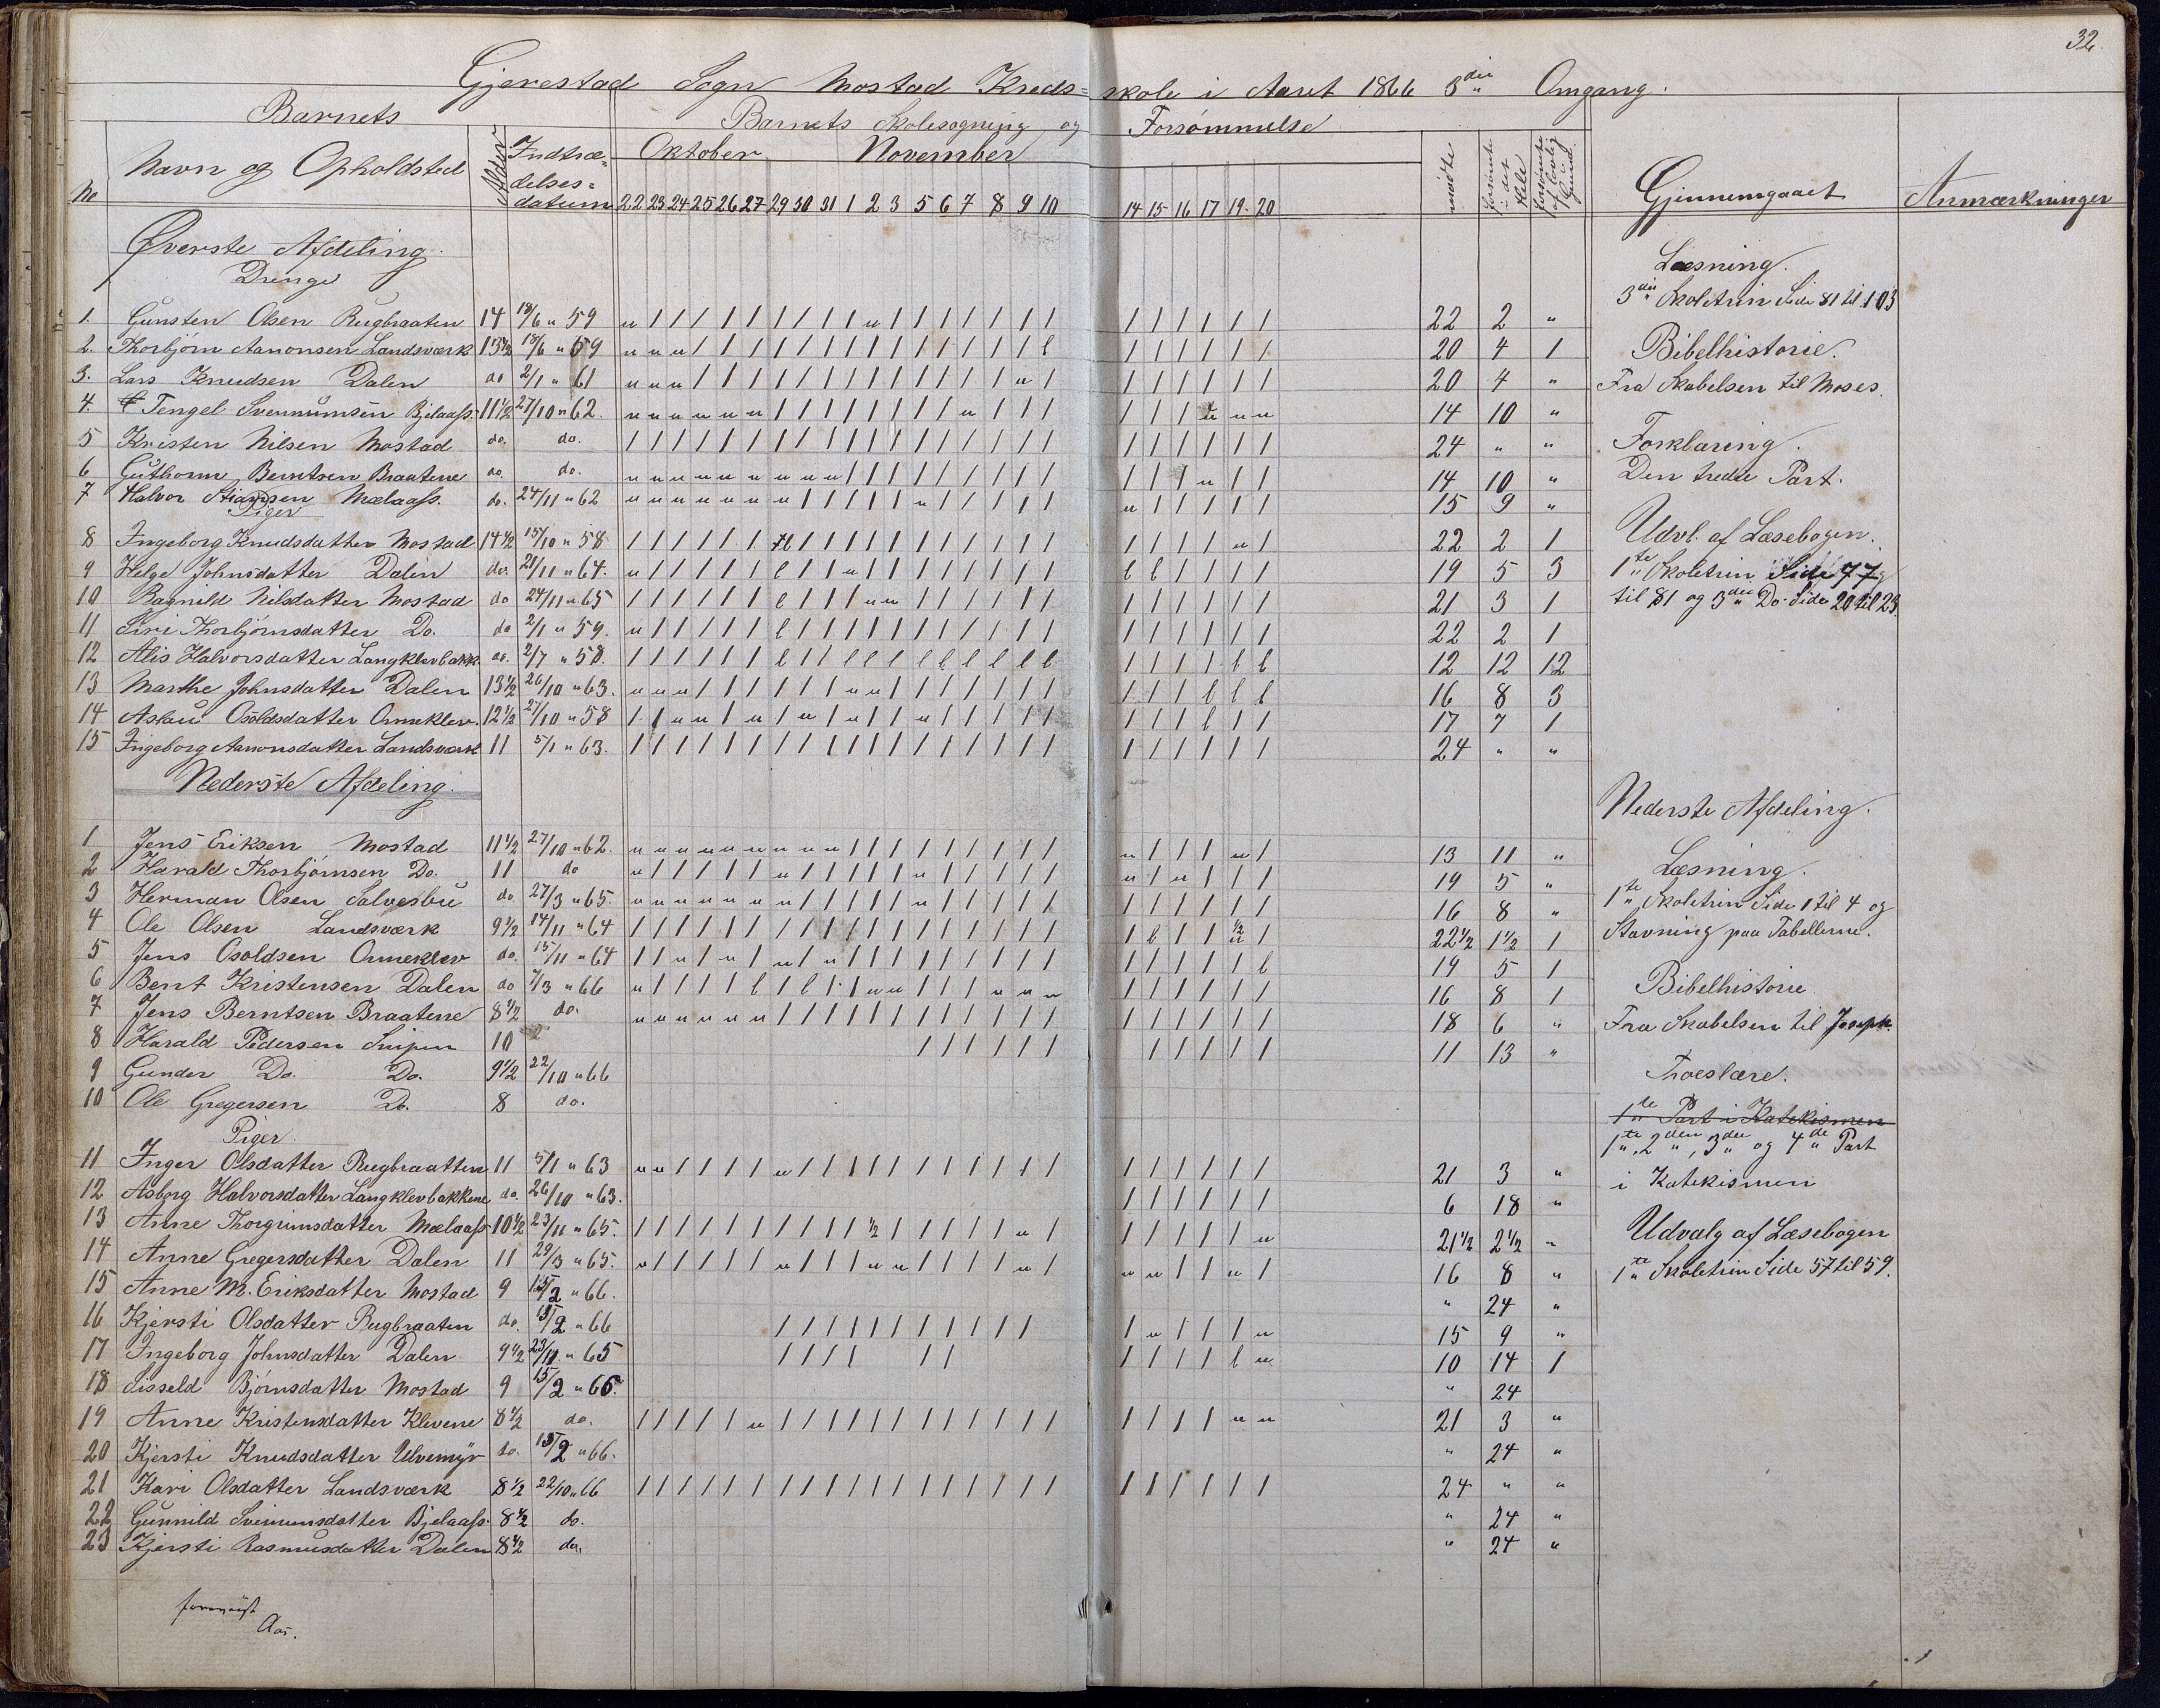 32.
Gjerestad Sogn Mostad Kreds= skole i Aaret 1866 3die Omgang.
Barnets Barnets Skolesøgning og Forsømmelse
No Navn og Opholdsted Alder Indtræ= delses= datum Oktober November mødte forsømte i det Hele forsømte af lovlig Grund Gjennemgaaet Anmærkninger
22 23 24 25 26 27 29 30 31 1 2 3 5 6 7 8 9 10 14 15 16 17 19 20
Øverste Afdeling.
Drenge
1. Gunsten Olsen Rugbraaten 14 18/6 " 59 u / / / / / / / / / u / / / / / / / / / / / / / 22 2 "
2. Thorbjørn Aanonsen Landsværk 13 1/2 18/6 " 59 u u u / / / / / / / / / / / / / / l / / / / / / 20 4 1
3. Lars Knudsen Dalen do 2/1 " 61 u u u / / / / / / / / / / / / / u / / / / / / / 20 4 "
4. Tengel Svennumsen Bjelaass. 11 1/2 27/10 " 62. u u u u u u / / / / / / / / u / / / / / / u u u 14 10 "
5 Kristen Nilsen Mostad do. do. / / / / / / / / / / / / / / / / / / / / / / / / 24 " "
6 Guthorm Berntsen Braatene do. do. u u u u u u u u u / / / / / / / / / / / / u / / 14 10 "
7 Halvor Mælaass. do. 24/11 " 62 u u u u u u u / / / / / u / / / / / u / / / / / 15 9 "
Piger
8 Ingeborg Knudsdatter Mostad 14 1/2 15/10 " 58 / / / / / / l / / / / / / / / / / / / / / / u / 22 2 1
9 Helge Johnsdatter Dalen do. 21/11 " 64. u / / / / / l / / u / / / / / / / / l l / / / / 19 5 3
10 Ragnild Nilsdatter Mostad do 24/11 " 65 / / / / / / l / / / u u / / / / / / / / / / / / 21 3 1
11 Siri Thorbjørnsdatter Do. do 2/1 " 59. u / / / / / l / / / / / / / / / / / / / / / / / 22 2 1
12 Alis Halvorsdatter Langklevbakk. do. 2/7 " 58. / / / / / / l / / l l l l l l l l l / / / / l l 12 12 12
13 Marthe Johnsdatter Dalen 13 1/2 26/10 " 63. u u u / / / / / / u u / / / / / / / / / / l l l 16 8 3
14 Aslau Osoldsdatter Ormeklev. 12 1/2 27/10 " 58 / / u u / u / u / u / / u / / / / / / / / l / / 17 7 1
15 Ingeborg Aanonsdatter Landsværk 11 5/1 " 63. / / / / / / / / / / / / / / / / / / / / / / / / 24 " "
Nederste Afdeling.
1 Jens Eriksen Mostad 11 1/2 27/10 " 62. u u u u u u u u u / / / / / / / / / u / / / u / 13 11 "
2 Harald Thorbjørnsen Do. 11 do u / / / / / u / / / / / u / / / / / u / u / / / 19 5 "
3 Herman Olsen Salvesbu do. 27/3 " 65. u u u u u u u / / / / / u / / / / / / / / / / / 16 8 "
4 Ole Olsen Landsværk 9 1/2 14/11 " 64 / / / / / / / / / / / / / / / / / / / l / / 1/2 u / 22 1/2 1 1/2 1
5 Jens Osoldsen Ormeklev do. 15/11 " 64 / / u / u / u / u / / / / / / / / / / / / / / l 19 5 1
6 Bent Kristensen Dalen do 7/3 " 66 u / / / / l / l / / u u / / / u u u / / / / / / 16 8 1
7 Jens Berntsen Braatene 8 1/2 do. u u u u u u / / / / / / / / / / / / / / / / / / 18 6 "
8 Harald Pedersen Snipen 10 / / / / / / / / / / / 11 13 "
9 Gunder Do. Do. 9 1/2 22/10 " 66
10 Ole Gregersen Do. 8 do.
Piger.
11 Inger Olsdatter Rugbraatten 11 5/1 " 63 u u / / / / u / / / / / / / / / / / / / / / / / 21 3 "
12 Asborg Halvorsdatter Langklevbakkene do. 26/10 " 63. / / / / / / 6 18 "
13 Anne Thorgrimsdatter Mælaass 10 1/2 23/11 " 65. / / / / / / / / / / 1/2 / / / / / u / / / / / / u 21 1/2 2 1/2 "
14 Anne Gregersdatter Dalen 11 29/3 " 65. u / / / / / u / / / u u / / / / u / u u / / u / 16 8 "
15 Anne M. Eriksdatter Mostad 9 15/2 " 66. " 24 "
16 Kjersti Olsdatter Rugbraaten do. 15/2 " 66 / / / / / / / / / / / / u / / / u 15 9 "
17 Ingeborg Johnsdatter Dalen 9 1/2 23/11 " 65 / / / / / / / / / / l u 10 14 1
18 Sisseld Bjørnsdatter Mostad 9 15/2 " 66. " 24
19 Anne Kristensdatter Klevene 8 1/2 do. / / / / / u / / / / / / / / / / / / / / / / u u 21 3 "
20 Kjersti Knudsdatter Ulvemyr do. 15/2 " 66. " 24 "
21 Kari Olsdatter Landsværk 8 1/2 22/10 " 66 / / / / / / / / / / / / / / / / / / / / / / / / 24 " "
22 Gunnild Svennumsdatter Bjelaass. 8 1/2 do. " 24 "
23 Kjersti Rasmusdatter Dalen 8 1/2 do. " 24 "
Aas.
Læsning.
3die Skoletrin Side 81 til 103
Bibelhistorie.
Fra Skabelsen til Moses.
Forklaring.
Den tredie Part.
Udvl. af Læsebogen.
1te Skoletrin Side 77
til 81 og 3die Do. Side 20 til 23.
Nederste Afdeling.
Læsning.
1te Skoletrin Side 1 til 4 og
Stavning paa Tabellerne.
Bibelhistorie
Fra Skabelsen til Joseph.
Troeslære.
1te Part i Katekismen
1te, 2den, 3die og 4de Part
i Katekismen
Udvalg af Læsebogen
1te Skoletrin Side 57 til 59.